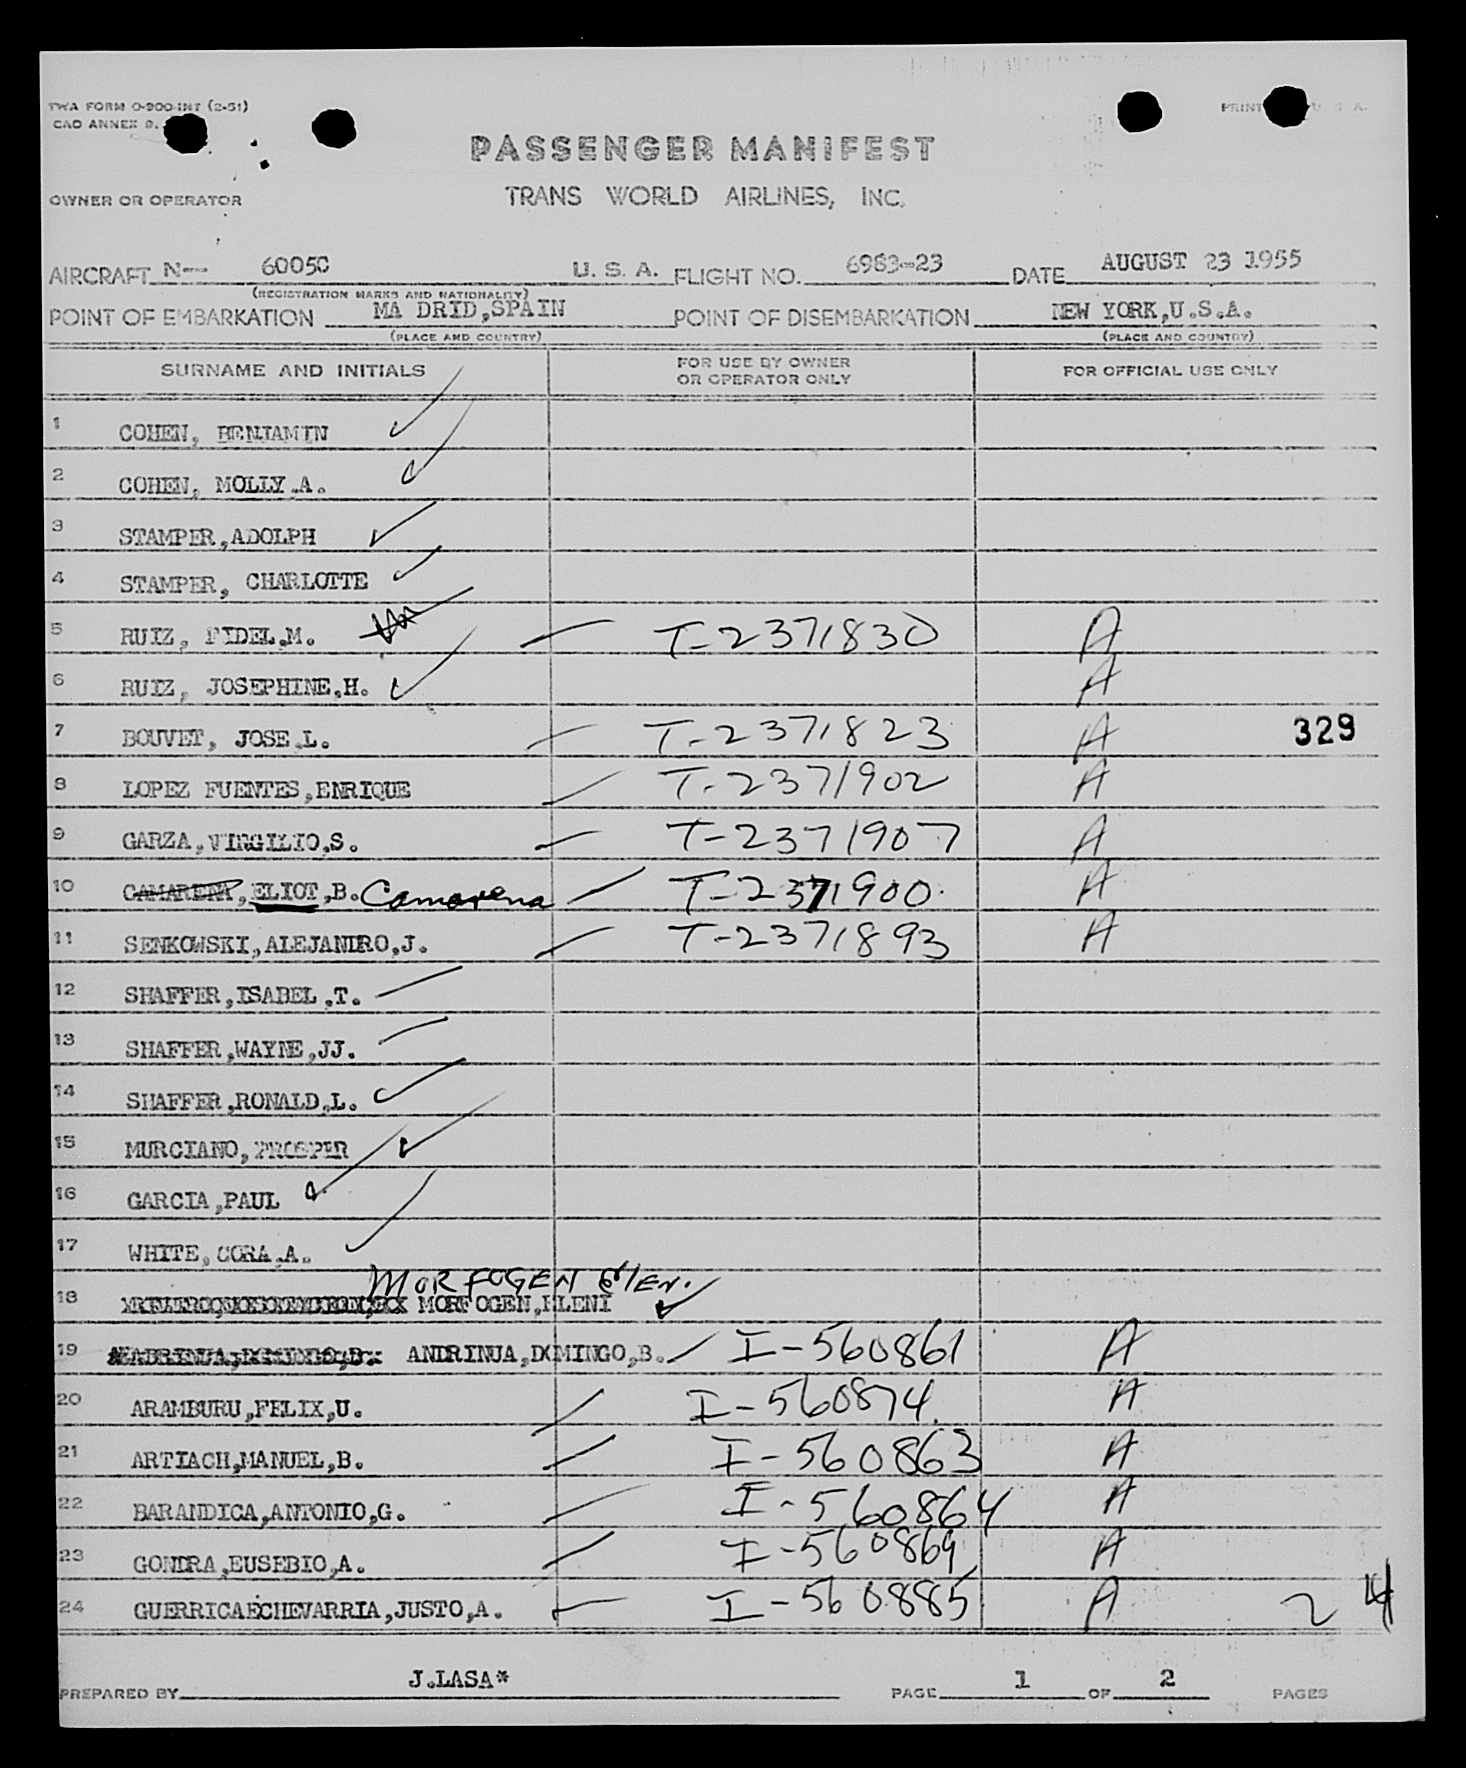 TWA FORM O-900-INT (2-51)
CAO ANNEX 9.
PRINT U. S. A.
PASSENGER MANIFEST
OWNER OR OPERATOR TRANS WORLD AIRLINES, INC.
AIRCRAFT N-- 6005C U. S. A. FLIGHT NO. 6983-23 DATE AUGUST 23 1955
(REGISTRATION MARKS AND NATIONALITY)
POINT OF EMBARKATION MA DRID,SPAIN POINT OF DISEMBARKATION NEW YORK,U.S.A.
(PLACE AND COUNTRY) (PLACE AND COUNTRY)
SURNAME AND INITIALS FOR USE BY OWNER OR OPERATOR ONLY FOR OFFICIAL USE ONLY
1 COHEN, BENJAMIN
2 COHEN, MOLLY.A.
3 STAMPER,ADOLPH
4 STAMPER, CHARLOTTE
5 RUIZ, FIDEL.M. T-2371830 A
6 RUIZ, JOSEPHINE,H. A
7 BOUVET, JOSE.L. T-2371823 A 329
8 LOPEZ FUENTES,ENRIQUE T-2371902 A
9 GARZA,VIRGILIO,S. T-2371907 A
10 CAMARENA, ELIOT,B. Camarena T-2371900 A
11 SENKOWSKI,ALEJANDRO,J. T-2371893 A
12 SHAFFER,ISABEL.T.
13 SHAFFER,WAYNE,JJ.
14 SHAFFER,RONALD,L.
15 MURCIANO,PROSPER
16 GARCIA,PAUL
17 WHITE,CORA.A.
MORFOGEN Elen.
18 MORFOGEN,ELENI
19 ANDRINUA,DOMINGO,B. I-560861 A
20 ARAMBURU,FELIX,U. I-560874 A
21 ARTIACH,MANUEL,B. I-560863 A
22 BARANDICA,ANTONIO,G. I-560864 A
23 GONDRA,EUSEBIO,A. I-560869 A
24 GUERRICAECHEVARRIA,JUSTO,A. I-560885 A 24
PREPARED BY J.LASA* PAGE 1 OF 2 PAGES